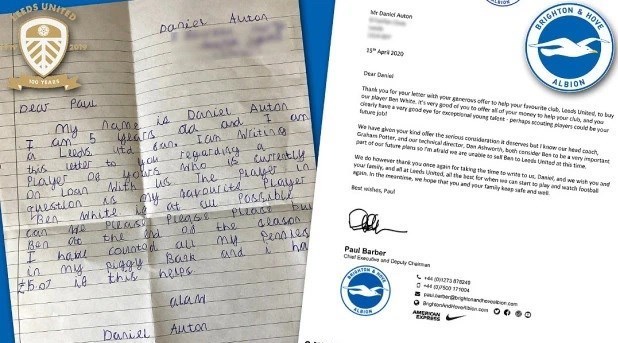 LEEDS UNITED
2019
100 YEARS
Daniel Auton
Dear Paul
My name is Daniel Auton
I am 5 years old and I am
a Leeds utd fan. I am Writing
this letter to you regarding a
Player of yours who is currently
On loan With us The Player in
question is my favourite Player
Ben White is at all Possible
can we Please Please Please buy
Ben the end of the season
I have counted all my Pennies
in my Piggy Bank and i
is this helps
alan
Daniel Auton
BRIGHTON & HOVE
ALBION
ALBION
Mr Daniel Auton
15th April 2020
Dear Daniel
Thank you for your letter with your generous offer to help your favourite club, Leeds United, to buy
our player Ben White, it's very good of you to offer all of your money to help your club, and you
clearly have a very good eye for exceptional young talent - perhaps scouting players could be your
future job!
We have given your kind offer the serious consideration it deserves but I know our head coach,
Graham Potter, and our technical director, Dan Ashworth, both consider Ben to be a very important
part of our future plans so I'm afraid we are unable to sell Ben to Leeds United at this time.
We do however thank you once again for taking the time to write to us, Daniel, and we wish you and
your family, and all at Leeds United, all the best for when we can start to play and watch football
again. In the meantime, we hope that you and your family keep safe and well.
Best wishes, Paul
Paul Barber
Chief Executive and Deputy Chairman
BRIGHTON & HOVE
ALBION
+44 (0)1273 878249
+44 (0)7500 171004
paul.barber@brightonandhovealbion.com
BrightonAndHoveAlbion.com
AMERICAN
EXPRESS